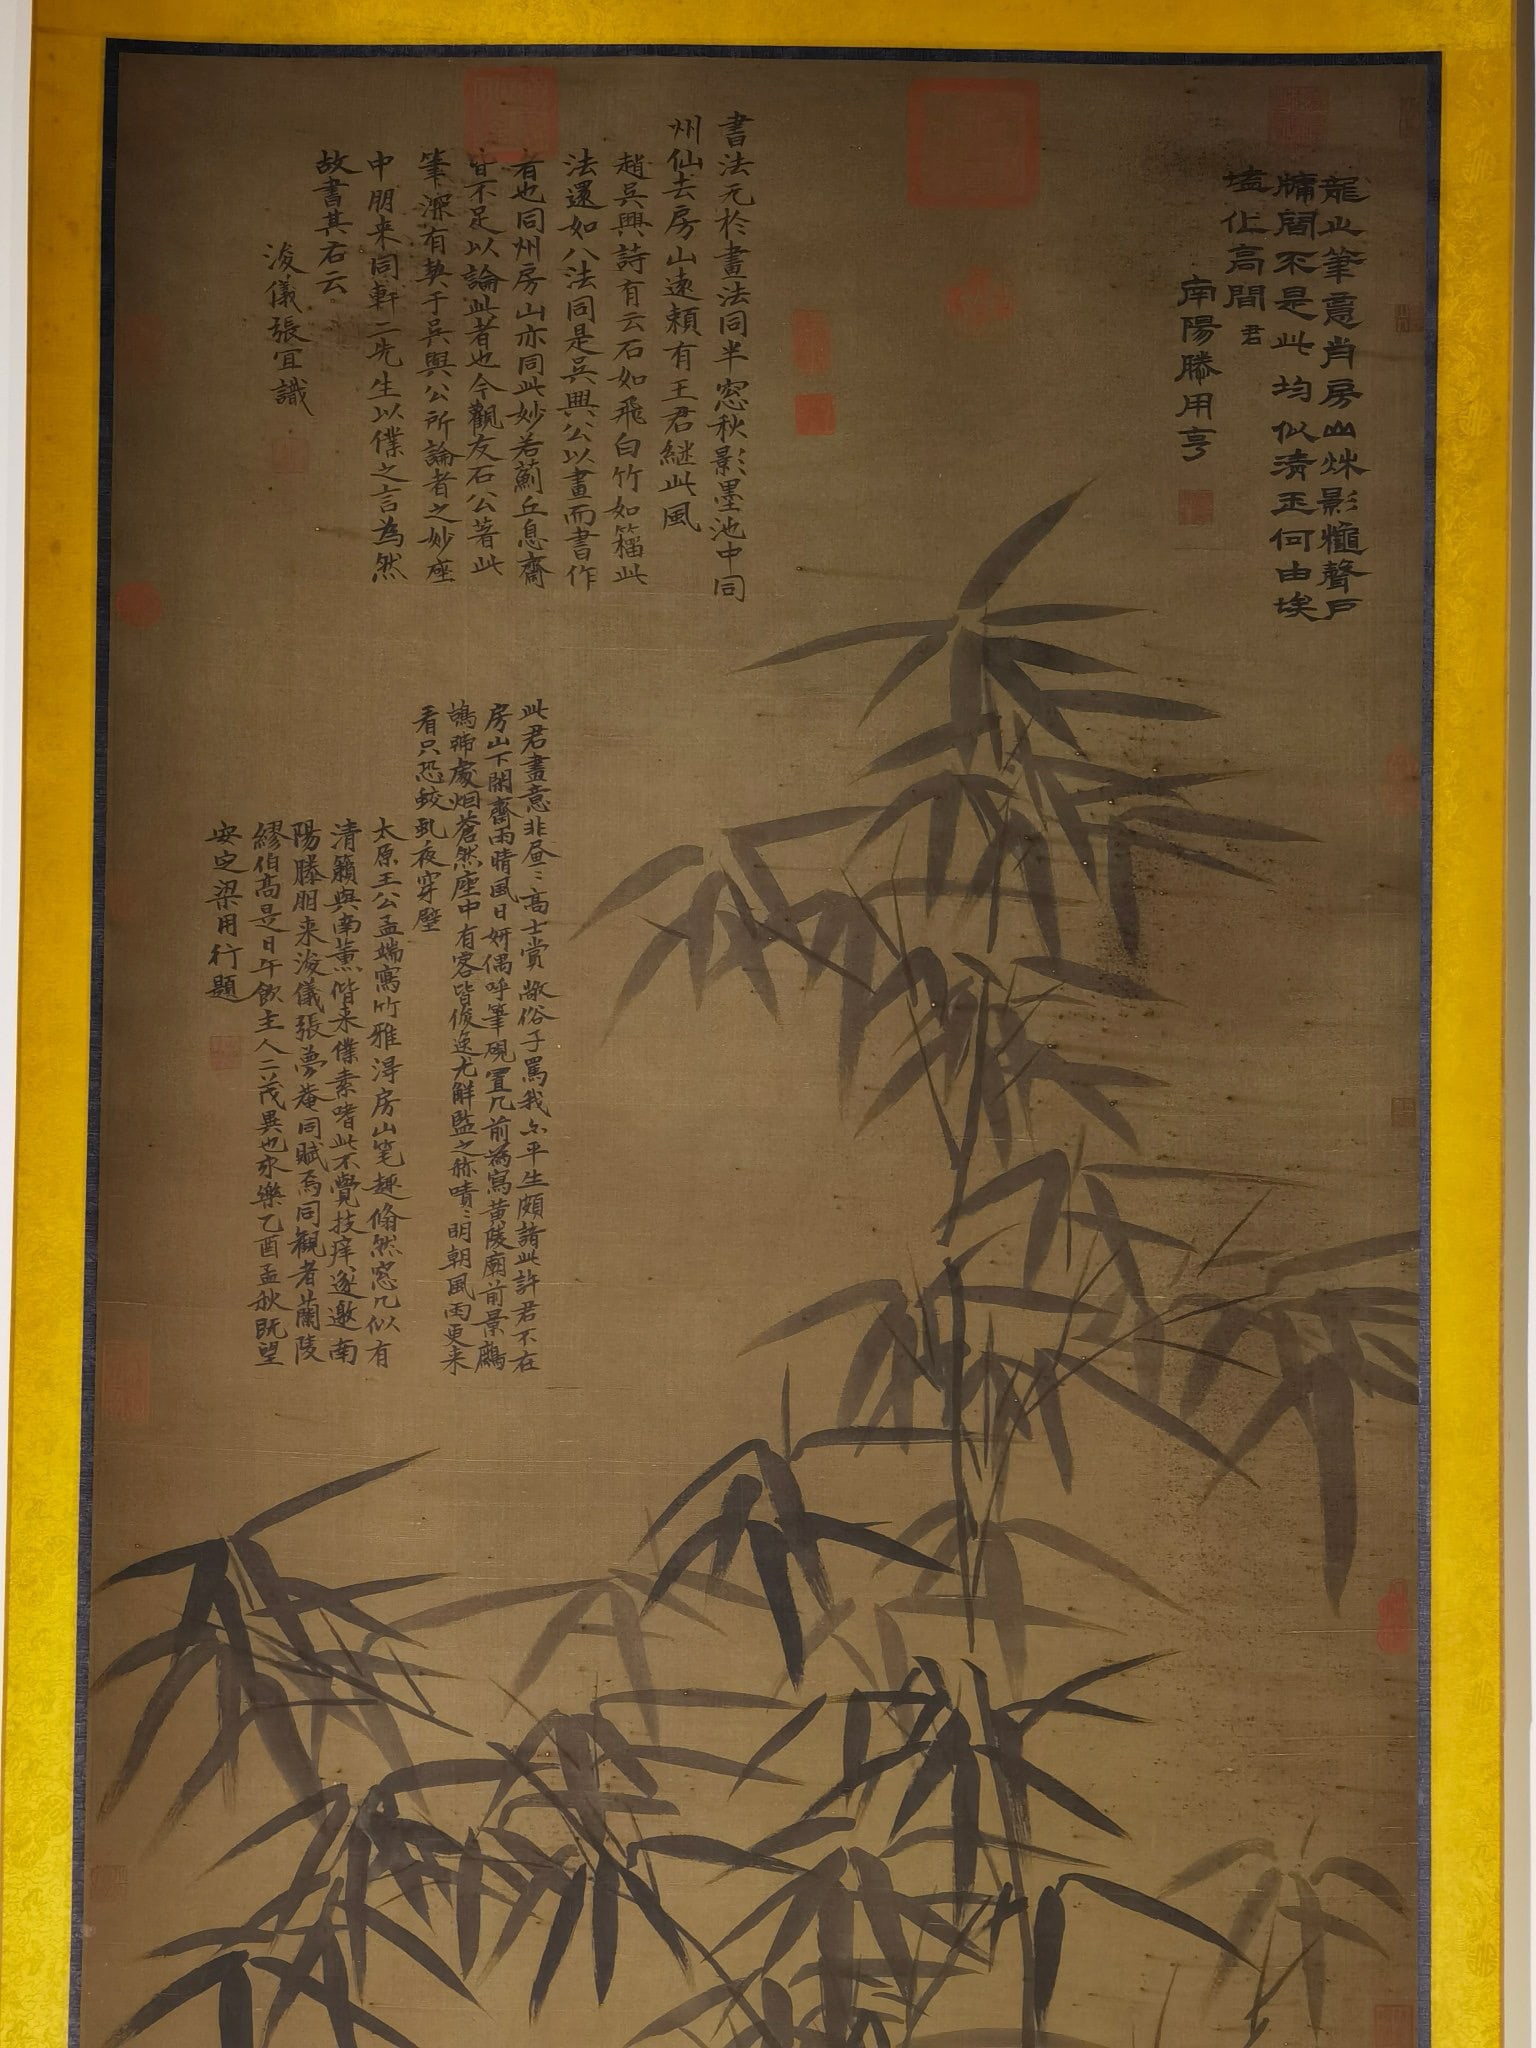 龍山筆意肖房山烌影𪚼聲戶
牖間不是此均似清玉何由埃
壒化高間君
南陽滕用亨
書法元於畫法同半窓秋影墨池中同
州仙去房山遠賴有王君継此風
趙吳興詩有云石如飛白竹如籀此
法還如八法同是吳興公以畫而書作
者也同州房山亦同此妙若薊丘息齋
皆不足以論此者也今觀友石公著此
筆深有契于吳興公所論者之妙座
中朋来同軒二先生以僕之言為然
故書其右云
浚儀張宜識
此君畫意非昼〻高士賞歊俗子罵我亦平生頗諳此許君不在
房山下閑齋雨晴風日妍偶呼筆硯置几前為寫黄陵廟前景鷓
鴣啼處烟蒼然座中有客皆俊逸尤鮮監之称嘖〻明朝風雨更来
看只恐蛟虬夜穿壁
太原王公孟端寫竹雅淂房山笔趣翛然窓几似有
清籟與南薫偕来僕素嗜此不覺技痒遂邀南
陽滕朋来浚儀張夢菴同賦焉同観者蘭陵
繆伯高是日午飲主人二茂異也永樂乙酉孟秋既望
安定梁用行題